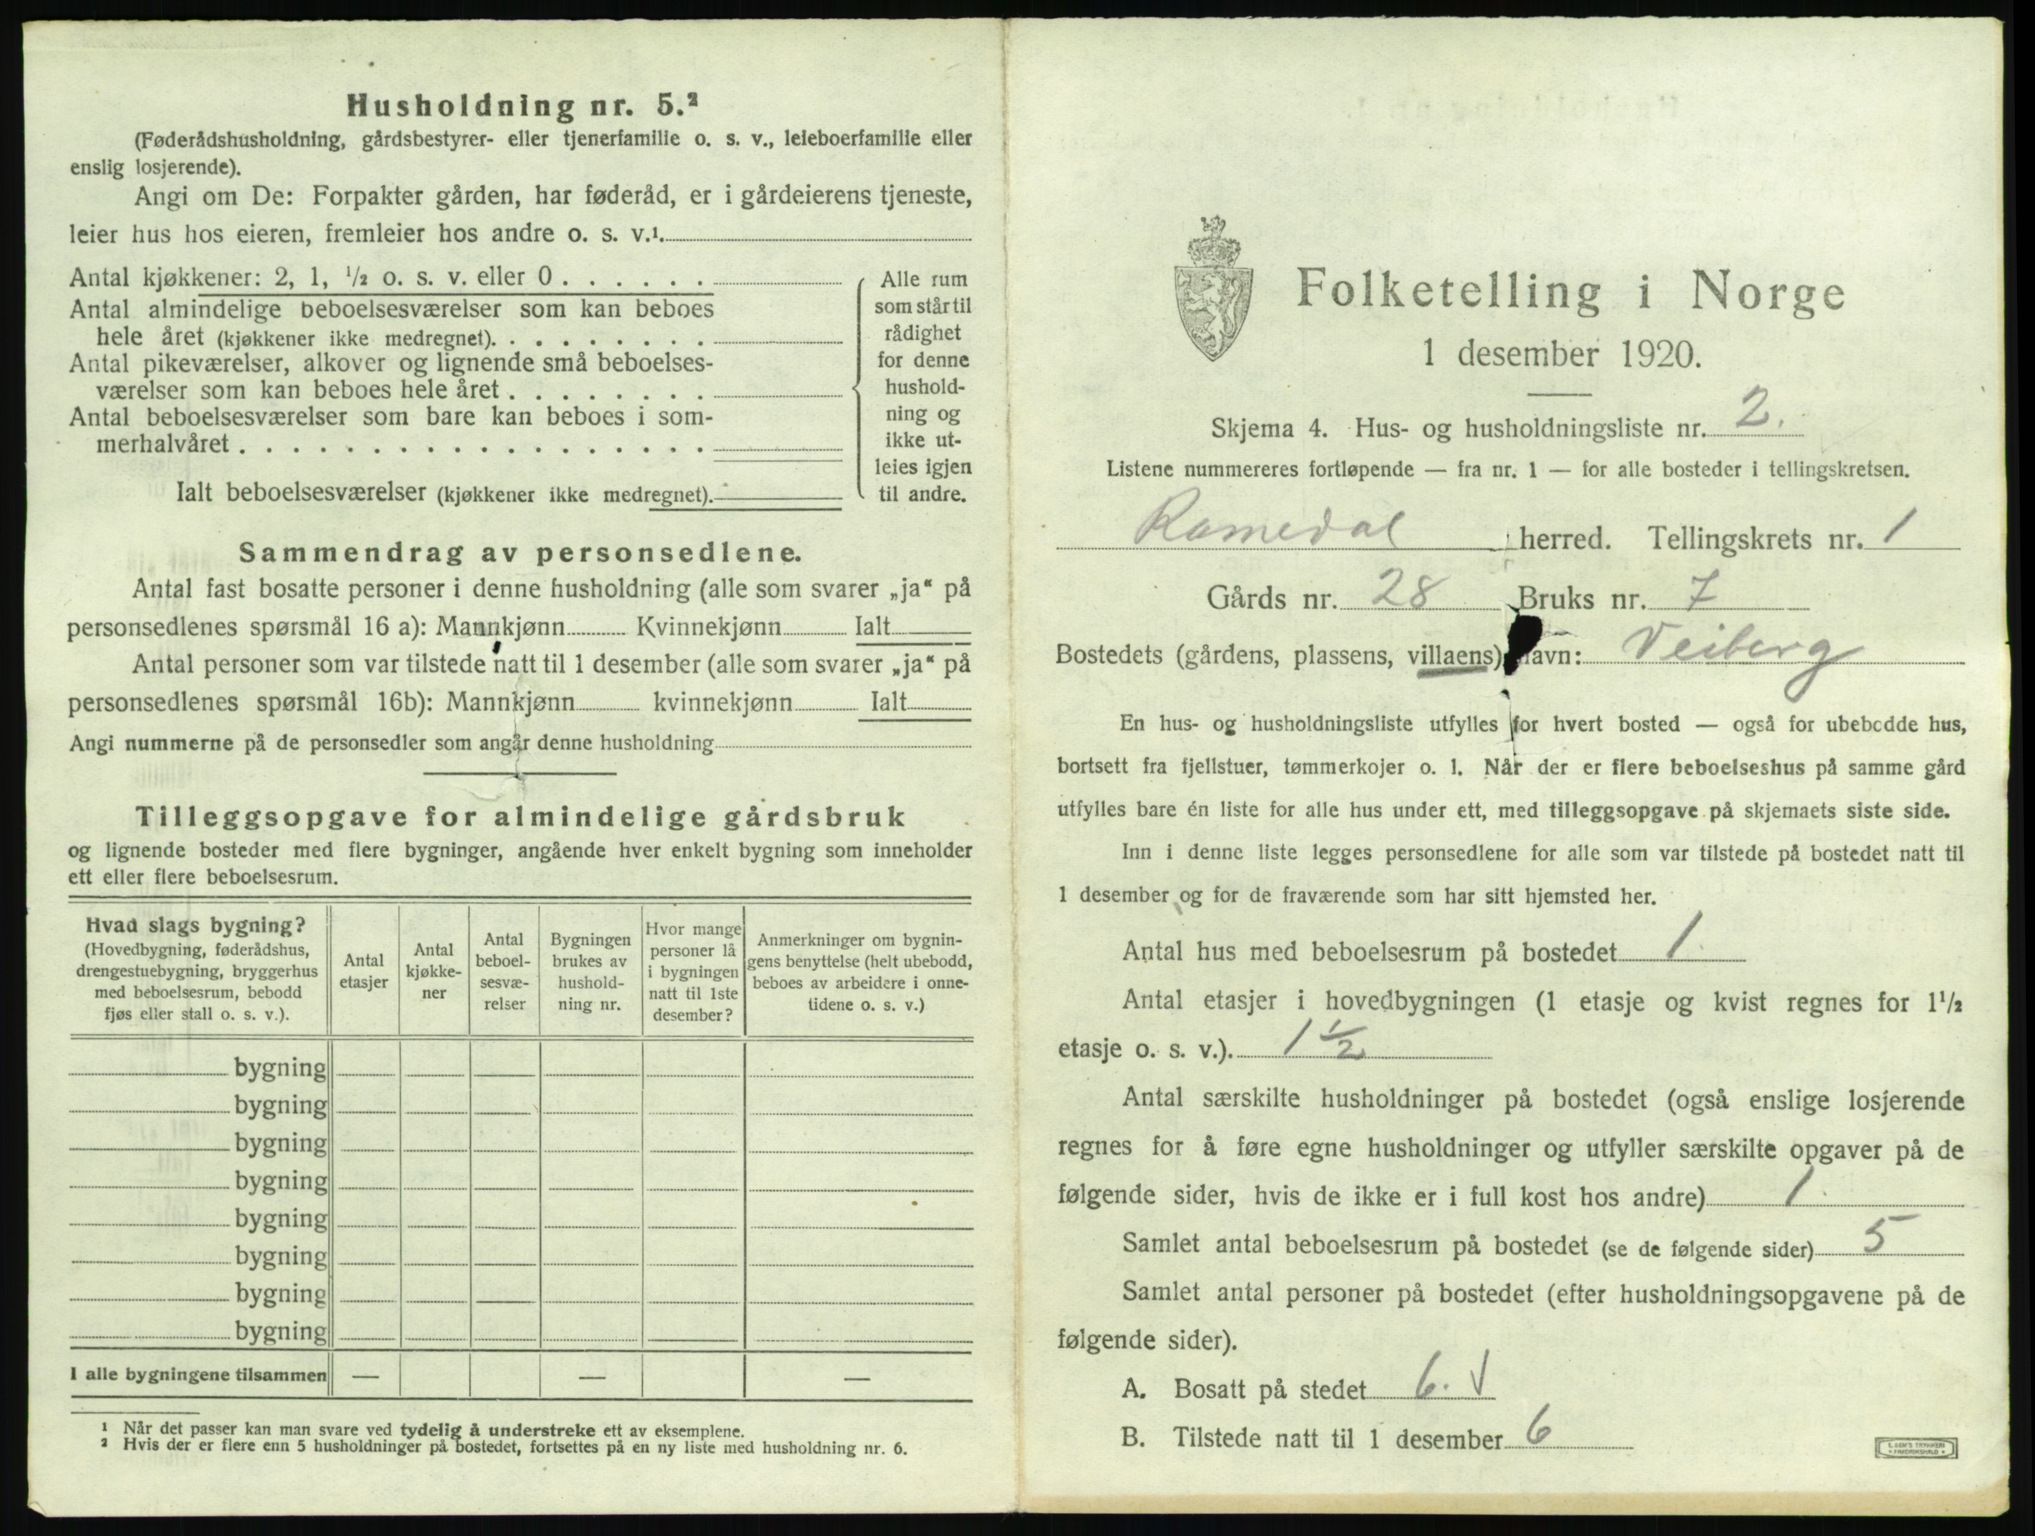 Husholdning nr. 5.²
(Føderådshusholdning, gårdsbestyrer- eller tjenerfamilie o. s. v., leieboerfamilie eller
enslig losjerende).
Angi om De: Forpakter gården, har føderåd, er i gårdeierens tjeneste,
leier hus hos eieren, fremleier hos andre o. s. v.¹
Antal kjøkkener: 2, 1, ½ o. s. v. eller 0 . . . . . .
Antal almindelige beboelsesværelser som kan beboes
hele året (kjøkkener ikke medregnet). . . . . . . . .
Antal pikeværelser, alkover og lignende små beboelses-
værelser som kan beboes hele året . . . . . . . .
Antal beboelsesværelser som bare kan beboes i som-
merhalvåret . . . . . . . . . . . . . . . . . .
Ialt beboelsesværelser (kjøkkener ikke medregnet).
Alle rum
som står til
rådighet
for denne
hushold-
ning og
ikke ut-
leies igjen
til andre.
Sammendrag av personsedlene.
Antal fast bosatte personer i denne husholdning (alle som svarer „ja“ på
personsedlenes spørsmål 16 a): Mannkjønn Kvinnekjønn Ialt
Antal personer som var tilstede natt til 1 desember (alle som svarer „ja“ på
personsedlenes spørsmål 16b): Mannkjønn kvinnekjønn Ialt
Angi nummerne på de personsedler som angår denne husholdning
Tilleggsopgave for almindelige gårdsbruk
og lignende bosteder med flere bygninger, angående hver enkelt bygning som inneholder
ett eller flere beboelsesrum.
Hvad slags bygning?
(Hovedbygning, føderådshus,
drengestuebygning, bryggerhus
med beboelsesrum, bebodd
fjøs eller stall o. s. v.).
Antal
etasjer
Antal
kjøkke-
ner
Antal
beboel-
sesvæ-
relser
Bygningen
brukes av
hushold-
ning nr.
Hvor mange
personer lå
i bygningen
natt til 1ste
desember?
Anmerkninger om bygnin-
gens benyttelse (helt ubebodd,
beboes av arbeidere i onne-
tidene o. s. v.)
bygning
bygning
bygning
bygning
bygning
bygning
bygning
bygning
I alle bygningene tilsammen — — —
¹ Når det passer kan man svare ved tydelig å understreke ett av eksemplene.
² Hvis der er flere enn 5 husholdninger på bostedet, fortsettes på en ny liste med husholdning nr. 6.
Folketelling i Norge
1 desember 1920.
Skjema 4. Hus- og husholdningsliste nr. 2.
Listene nummereres fortløpende — fra nr. 1 — for alle bosteder i tellingskretsen.
Romedal herred. Tellingskrets nr. 1
Gårds nr. 28 Bruks nr. 7
Bostedets (gårdens, plassens, villaens) navn: Veiberg
En hus- og husholdningsliste utfylles for hvert bosted — også for ubebodde hus,
bortsett fra fjellstuer, tømmerkojer o. l. Når der er flere beboelseshus på samme gård
utfylles bare én liste for alle hus under ett, med tilleggsopgave på skjemaets siste side.
Inn i denne liste legges personsedlene for alle som var tilstede på bostedet natt til
1 desember og for de fraværende som har sitt hjemsted her.
Antal hus med beboelsesrum på bostedet 1.
Antal etasjer i hovedbygningen (1 etasje og kvist regnes for 1½
etasje o. s. v.). 1½
Antal særskilte husholdninger på bostedet (også enslige losjerende
regnes for å føre egne husholdninger og utfyller særskilte opgaver på de
følgende sider, hvis de ikke er i full kost hos andre) 1.
Samlet antal beboelsesrum på bostedet (se de følgende sider) 5
Samlet antal personer på bostedet (efter husholdningsopgavene på de
følgende sider).
A. Bosatt på stedet 6. √
B. Tilstede natt til 1 desember 6